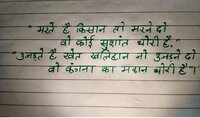 "मरते हैं किसान तो मरने दो
वो कोई सुशांत थोरी हैं."
"उजड़ते हैं खेत खलिहान तो उजड़ने दो
वो कंगना का मकान थोरी हैं।